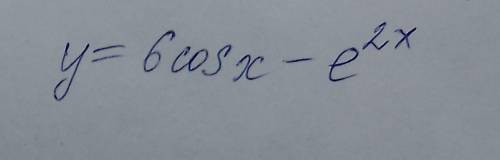 y = 6cosx − e^{2x}